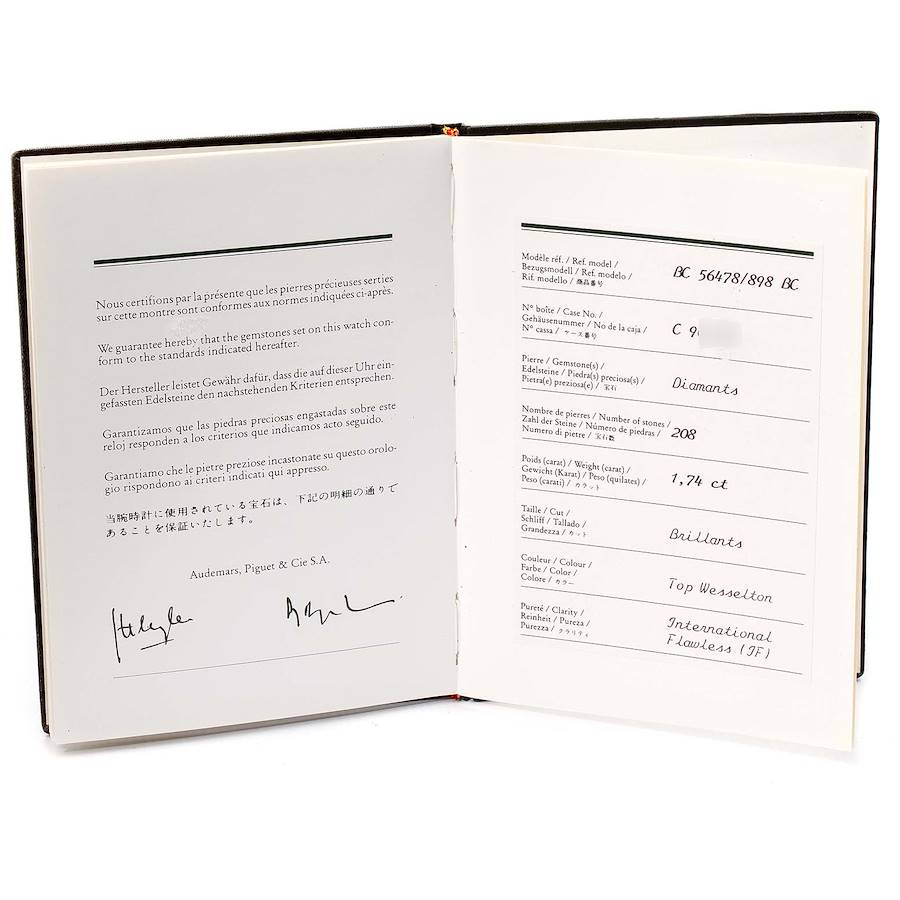 Nous certifions par la présente que les pierres précieuses serties
sur cette montre sont conformes aux normes indiquées ci-après.
We guarantee hereby that the gemstones set on this watch con-
form to the standards indicated hereafter.
Der Hersteller leistet Gewähr dafür, dass die auf dieser Uhr ein-
gefassten Edelsteine den nachstehenden Kriterien entsprechen.
Garantizamos que las piedras preciosas engastadas sobre este
reloj responden a los criterios que indicamos acto seguido.
Garantiamo che le pietre preziose incastonate su questo orolo-
gio rispondono ai criteri indicati qui appresso.
当腕時計に使用されている宝石は、下記の明細の通りで
あることを保証いたします。
Audemars, Piguet & Cie S.A.
Modèle réf. / Ref. model /
Bezugsmodell / Ref. modelo /
Rif. modello / 商品番号
BC 56478/898 BC
N° boîte / Case No. /
Gehäusenummer / No de la caja /
N° cassa / ケース番号
C 9
Pierre / Gemstone(s) /
Edelsteine / Piedra(s) preciosa(s) /
Pietra(e) preziosa(e) / 宝石
Diamants
Nombre de pierres / Number of stones /
Zahl der Steine / Número de piedras /
Numero di pietre / 宝石数
208
Poids (carat) / Weight (carat) /
Gewicht (Karat) / Peso (quilates) /
Peso (carati) / カラット
1,74 ct
Taille / Cut /
Schliff / Tallado /
Grandezza / カット
Brillants
Couleur / Colour /
Farbe / Color /
Colore / カラー
Top Wesselton
Pureté / Clarity /
Reinheit / Pureza /
Purezza / クラリティ
International
Flawless (IF)